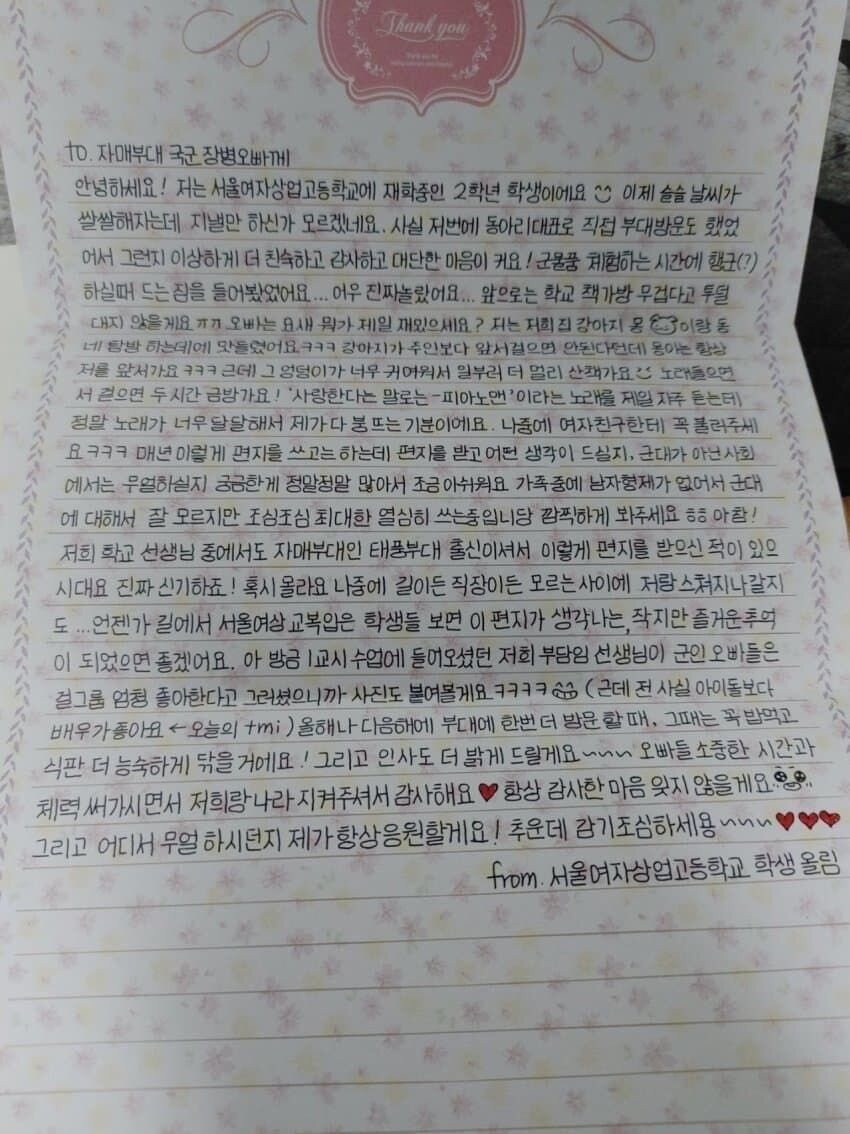 Thank you
to. 자매부대 국군 장병오빠께
안녕하세요! 저는 서울여자상업고등학교에 재학중인 2학년 학생이에요 이제 슬슬 날씨가
쌀쌀해지는데 지낼만 하신가 모르겠네요. 사실 저번에 동아리대표로 직접 부대방문도 했었
어서 그런지 이상하게 더 친숙하고 감사하고 대단한 마음이 커요! 군물품 체험하는 시간에 행군(?)
하실때 드는 짐을 들어봤었어요... 어우 진짜놀랐어요... 앞으로는 학교 책가방 무겁다고 투덜
대지 않을게요ㅠㅠ 오빠는 요새 뭐가 제일 재밌으세요? 저는 저희집 강아지 몽이랑 동
네 탐방 하는데에 맛들렸어요ㅋㅋㅋ 강아지가 주인보다 앞서걸으면 안된다던데 몽이는 항상
저를 앞서가요ㅋㅋㅋ 근데 그 엉덩이가 너무 귀여워서 일부러 더 멀리 산책가요 노래들으면
서 걸으면 두시간 금방가요! '사랑한다는 말로는-피아노맨'이라는 노래를 제일 자주 듣는데
정말 노래가 너무 달달해서 제가 다 붕 뜨는 기분이에요. 나중에 여자친구한테 꼭 불러주세
요ㅋㅋㅋ 매년 이렇게 편지를 쓰고는 하는데 편지를 받고 어떤 생각이 드실지, 군대가 아닌 사회
에서는 무얼하실지 궁금한게 정말정말 많아서 조금 아쉬워요 가족중에 남자형제가 없어서 군대
에 대해서 잘 모르지만 조심조심 최대한 열심히 쓰는중입니당 깜찍하게 봐주세요 ㅎㅎ 아참!
저희 학교 선생님 중에서도 자매부대인 태풍부대 출신이셔서 이렇게 편지를 받으신 적이 있으
시대요 진짜 신기하죠! 혹시 몰라요 나중에 길이든 직장이든 모르는 사이에 저랑 스쳐지나갈지
도...언젠가 길에서 서울여상 교복입은 학생들 보면 이 편지가 생각나는, 작지만 즐거운 추억
이 되었으면 좋겠어요. 아 방금 1교시 수업에 들어오셨던 저희 부담임 선생님이 군인 오빠들은
걸그룹 엄청 좋아한다고 그러셨으니까 사진도 붙여볼게요ㅋㅋㅋㅋ (근데 전 사실 아이돌보다
배우가 좋아요 ← 오늘의 tmi) 올해나 다음해에 부대에 한번 더 방문 할 때, 그때는 꼭 밥먹고
식판 더 능숙하게 닦을 거에요! 그리고 인사도 더 밝게 드릴게요~~~ 오빠들 소중한 시간과
체력 써가시면서 저희랑 나라 지켜주셔서 감사해요♥ 항상 감사한 마음 잊지 않을게요
그리고 어디서 무얼 하시던지 제가 항상 응원할게요! 추운데 감기조심하세용~~~♥♥♥
from. 서울여자상업고등학교 학생 올림